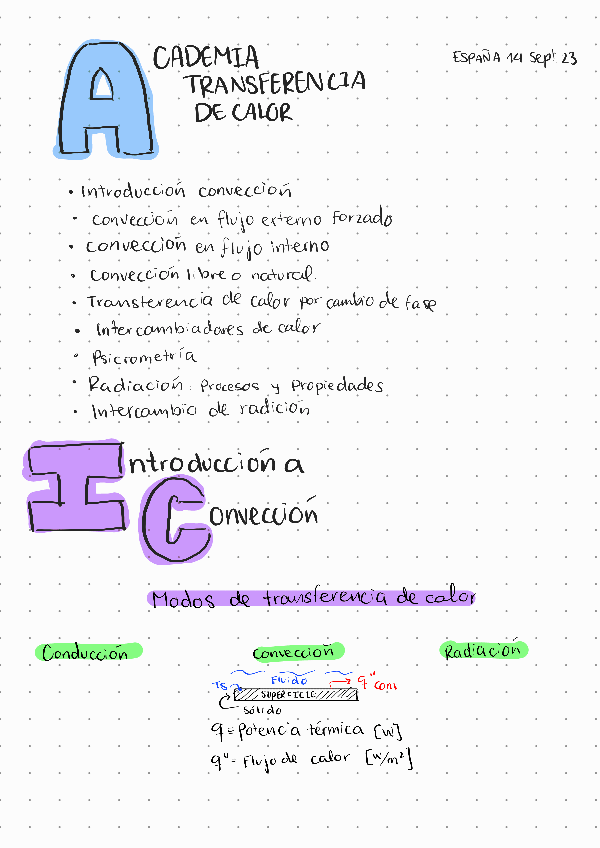 ACADEMIA
TRANSFERENCIA
DE CALOR
ESPAÑA 14 Sept 23
• Introducción convección
• Convección en flujo externo forzado
• Convección en flujo interno
• Convección libre o natural.
• Transferencia de calor por cambio de fase
• Intercambiadores de calor
• Psicrometría
• Radiación: Procesos y Propiedades
• Intercambio de radición
Introducción a
Convección
Modos de transferencia de calor
Conducción
Convección
Radiación
Ts
Fluido
q" conv
SUPERFICIE
Sólido
q = Potencia térmica [W]
q" = Flujo de calor [W/m²]